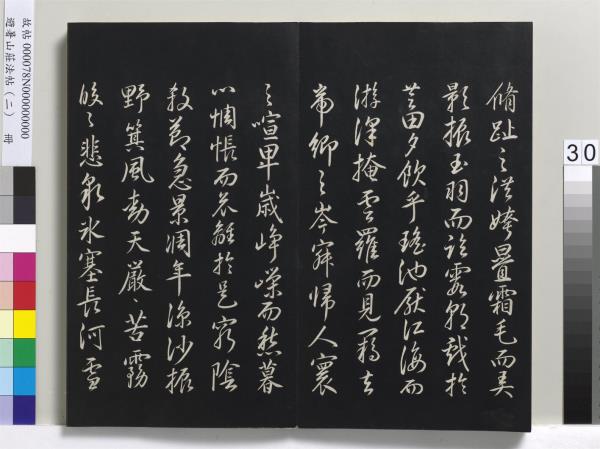 脩趾之洪姱疊霜毛而弄
影振玉羽而臨霞朝戲於
芝田夕飲乎瑤池厭江海而
游澤掩雲羅而見羈去
帝鄉之岑寂歸人寰
之喧卑歲崢嶸而愁暮
心惆悵而哀離於是窮陰
殺節急景凋年涼沙振
野箕風動天嚴〻苦霧
皎〻悲泉冰塞長河雪
故帖 000078N000000000
避暑山莊法帖（二） 冊
30